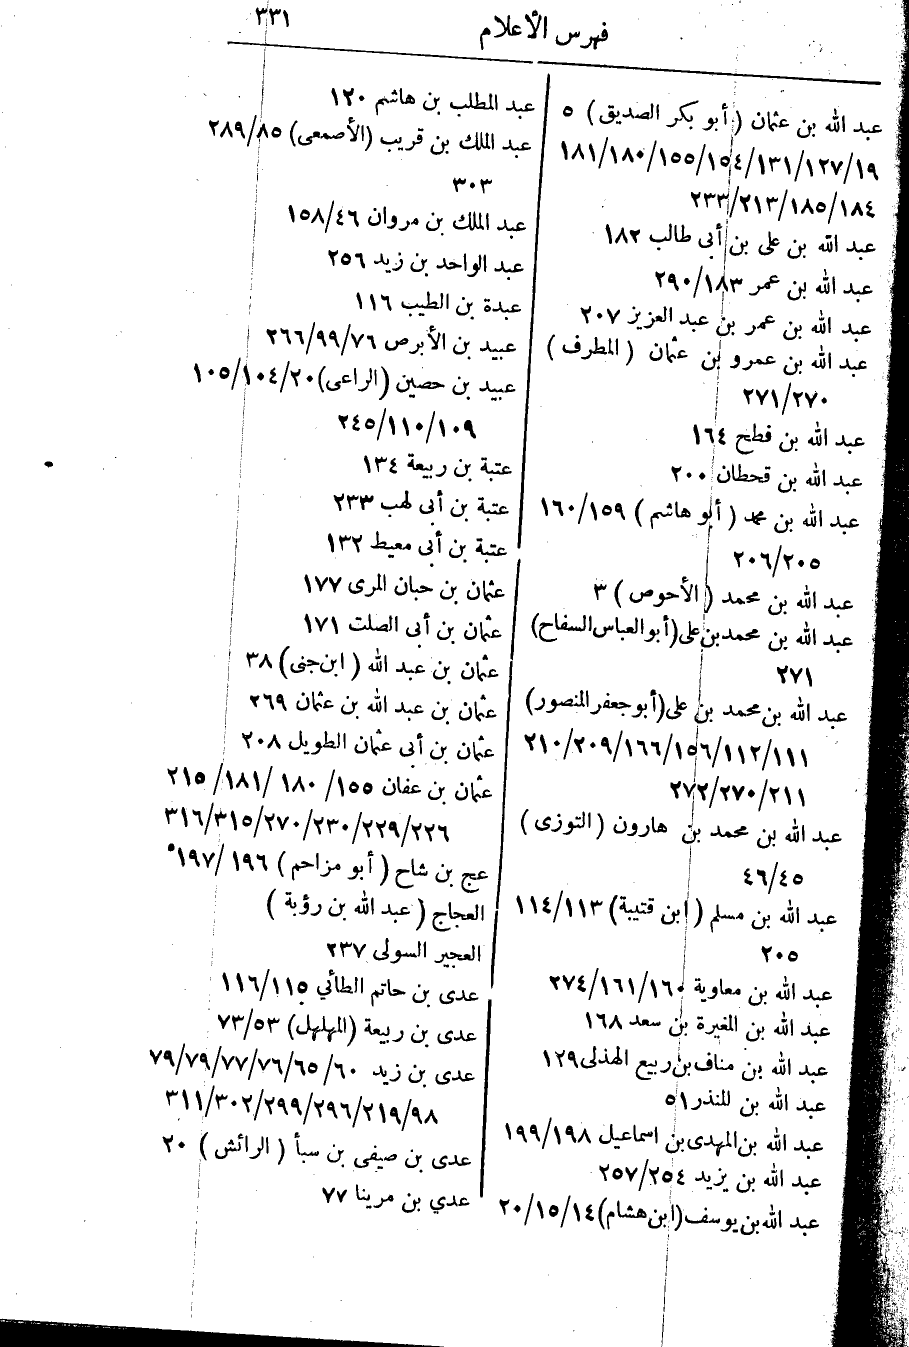 فهرس الأعلام ٣٣١
عبد الله بن عثمان ( أبو بكر الصديق ) ٥
١٩/١٢٧/١٣١/١٥٤/١٥٥/١٨٠/١٨١
١٨٤/١٨٥/٢١٣/٢٣٣
عبد الله بن على بن أبى طالب ١٨٢
عبد الله بن عمر ١٨٣/٢٩٠
عبد الله بن عمر بن عبد العزيز ٢٠٧
عبد الله بن عمرو بن عثمان ( المطرف )
٢٧٠/٢٧١
عبد الله بن قطح ١٦٤
عبد الله بن قحطان ٢٠٠
عبد الله بن محمد ( أبو هاشم ) ١٥٩/١٦٠
٢٠٥/٢٠٦
عبد الله بن محمد ( الأحوص ) ٣
عبد الله بن محمد بن على (أبو العباس السفاح)
٢٧١
عبد الله بن محمد بن على (أبو جعفر المنصور)
١١١/١١٢/١٥٦/١٦٦/٢٠٩/٢١٠
٢١١/٢٧٠/٢٧٢
عبد الله بن محمد بن هارون ( التوزى )
٤٥/٤٦
عبد الله بن مسلم ( ابن قتيبة) ١١٣/١١٤
٢٠٥
عبد الله بن معاوية ١٦٠/١٦١/٢٧٤
عبد الله بن المغيرة بن سعد ١٦٨
عبد الله بن مناف بن ربيع الهذلى ١٢٩
عبد الله بن المنذر ٥١
عبد الله بن المهدى بن اسماعيل ١٩٨/١٩٩
عبد الله بن يزيد ٢٥٤/٢٥٧
عبد الله بن يوسف (ابن هشام) ١٤/١٥/٢٠
عبد المطلب بن هاشم ١٢٠
عبد الملك بن قريب (الأصمعى) ٨٥/٢٨٩
٣٠٣
عبد الملك بن مروان ٤٦/١٥٨
عبد الواحد بن زيد ٢٥٦
عبدة بن الطيب ١١٦
عبيد بن الأبرص ٧٦/٩٩/٢٦٦
عبيد بن حصين (الراعى) ٢٠/١٠٤/١٠٥
١٠٩/١١٠/٢٤٥
عتبة بن ربيعة ١٣٤
عتبة بن أبى لهب ٢٣٣
عتبة بن أبى معيط ١٣٢
عثمان بن حبان المرى ١٧٧
عثمان بن أبى الصلت ١٧١
عثمان بن عبد الله ( ابن جنى) ٣٨
عثمان بن عبد الله بن عثمان ٢٦٩
عثمان بن أبى عثمان الطويل ٢٠٨
عثمان بن عفان ١٥٥/ ١٨٠ /١٨١/ ٢١٥
٢٢٦/٢٢٩/٢٣٠/٢٧٠/٣١٥/٣١٦
عج بن شاح ( أبو مزاحم ) ١٩٦ /١٩٧
العجاج ( عبد الله بن رؤبة )
العجير السولى ٢٣٧
عدى بن حاتم الطائي ١١٥/١١٦
عدى بن ربيعة (المهلهل) ٥٣/٧٣
عدى بن زيد ٦٠/٦٥/٧٦/٧٧/٧٩/٧٩
٩٨/٢١٩/٢٩٦/٢٩٩/٣٠٢/٣١١
عدى بن صيفى بن سبأ ( الرائش ) ٢٠
عدي بن مرينا ٧٧